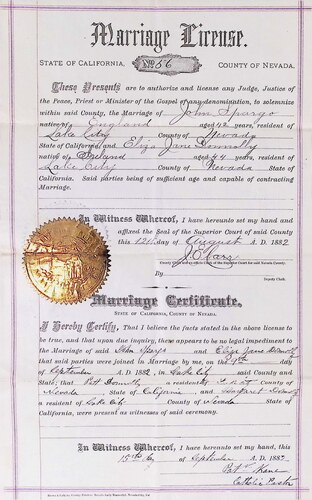 Marriage License.
STATE OF CALIFORNIA, No 56 COUNTY OF NEVADA.
These Presents are to authorize and license any Judge, Justice of
the Peace, Priest or Minister of the Gospel of any denomination, to solemnize
within said County, the Marriage of John Spargo
native of England aged 42 years, resident of
Lake City County of Nevada
State of California, and Eliza Jane Donnolly
native of Ireland aged 44 years, resident of
Lake City County of Nevada State of
California. Said parties being of sufficient age and capable of contracting
Marriage.
In Witness Whereof, I have hereunto set my hand and
affixed the Seal of the Superior Court of said County
this 12th day August A. D. 1882
By
Deputy Clerk.
Marriage Certificate.
STATE OF CALIFORNIA, COUNTY OF NEVADA.
I Hereby Certify, That I believe the facts stated in the above license to
be true, and that upon due inquiry, there appears to be no legal impediment to
the Marriage of said John Spargo and Eliza Jane Donnolly
that said parties were joined in Marriage by me, on the 9th day
of September A. D. 1882, in Lake City said County and
State; that Pat Donnolly a resident of County of
Nevada State of California, and Margaret
a resident of Lake City County of Nevada State of
California, were present as witnesses of said ceremony.
In Witness Whereof, I have hereunto set my hand, this
15th day of September A. D. 1882.
Pat Kane
Catholic Pastor